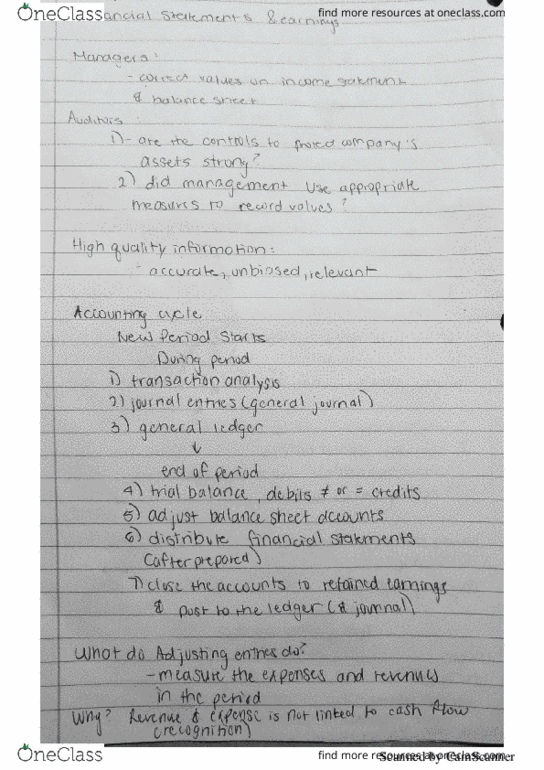 OneClass
find more resources at oneclass.com
ancial Statements & earnings
Managers:
- correct values on income statement
& balance sheet
Auditors:
1) - are the controls to protect company's
assets strong?
2) did management use appropriate
measures to record values?
High quality information:
- accurate, unbiased, relevant
Accounting cycle
New Period Starts
During period
1) transaction analysis
2) journal entries (general journal)
3) general ledger
↓
end of period
4) trial balance, debits ≠ or = credits
5) adjust balance sheet accounts
6) distribute financial statements
(after prepared)
7) close the accounts to retained earnings
& post to the ledger (& journal)
What do Adjusting entries do?
- measure the expenses and revenues
in the period
Why? Revenue & expense is not linked to cash flow
(recognition)
OneClass
find more resources at oneclass.com
Scanned by CamScanner